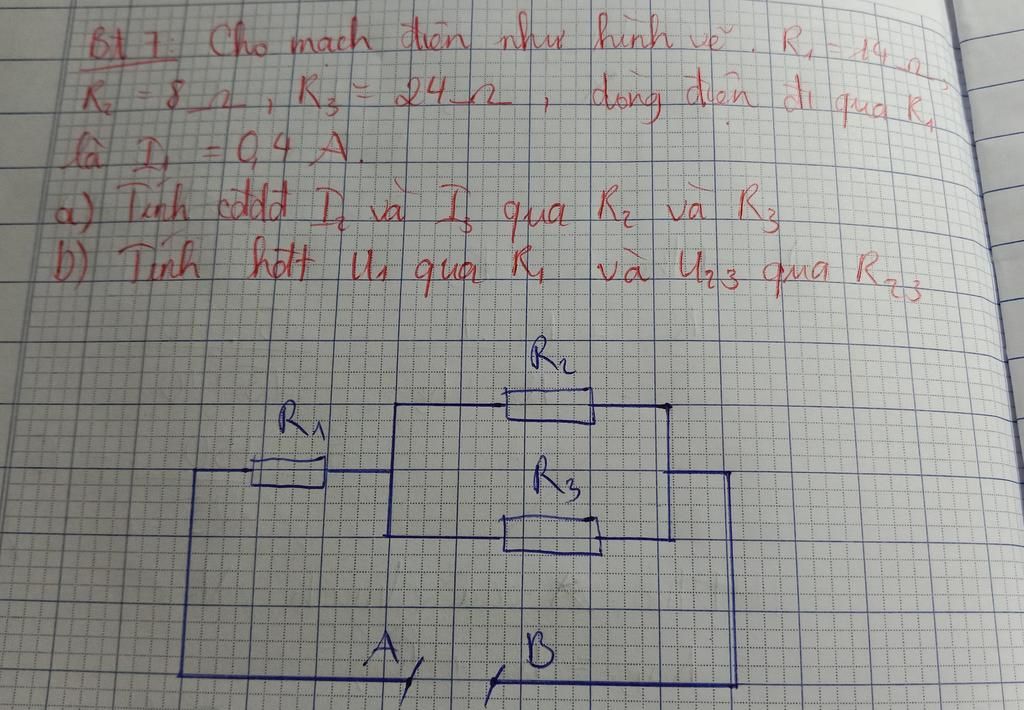 Bt 7: Cho mạch điện như hình vẽ. R₁ = 14Ω,
R₂ = 8Ω, R₃ = 24Ω, dòng điện đi qua R₁
là I₁ = 0,4 A.
a) Tính cđdđ I₂ và I₃ qua R₂ và R₃
b) Tính hđt U₁ qua R₁ và U₂₃ qua R₂₃
R₂
R₁
R₃
A B